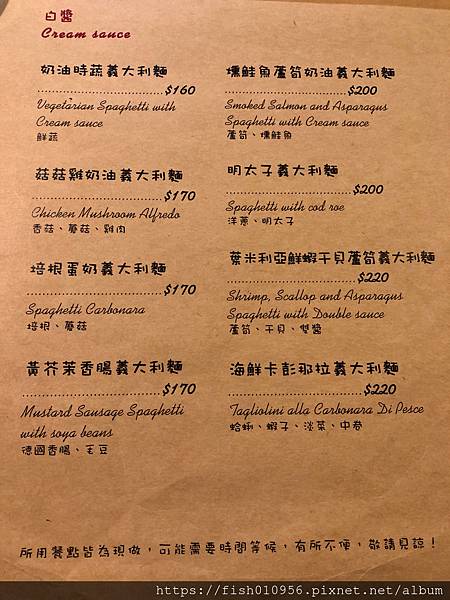 白醬
Cream sauce
奶油時蔬義大利麵
$160
Vegetarian Spaghetti with
Cream sauce
鮮蔬
菇菇雞奶油義大利麵
$170
Chicken Mushroom Alfredo
香菇、蘑菇、雞肉
培根蛋奶義大利麵
$170
Spaghetti Carbonara
培根、蘑菇
黃芥茉香腸義大利麵
$170
Mustard Sausage Spaghetti
with soya beans
德國香腸、毛豆
燻鮭魚蘆筍奶油義大利麵
$200
Smoked Salmon and Asparagus
Spaghetti with Cream sauce
蘆筍、燻鮭魚
明太子義大利麵
$200
Spaghetti with cod roe
洋蔥、明太子
葉米利亞鮮蝦干貝蘆筍義大利麵
$220
Shrimp, Scallop and Asparagus
Spaghetti with Double sauce
蘆筍、干貝、雙醬
海鮮卡彭那拉義大利麵
$220
Tagliolini alla Carbonara Di Pesce
蛤蜊、蝦子、淡菜、中卷
所用餐點皆為現做，可能需要時間等候，有所不便，敬請見諒！
https://fish010956.pixnet.net/album